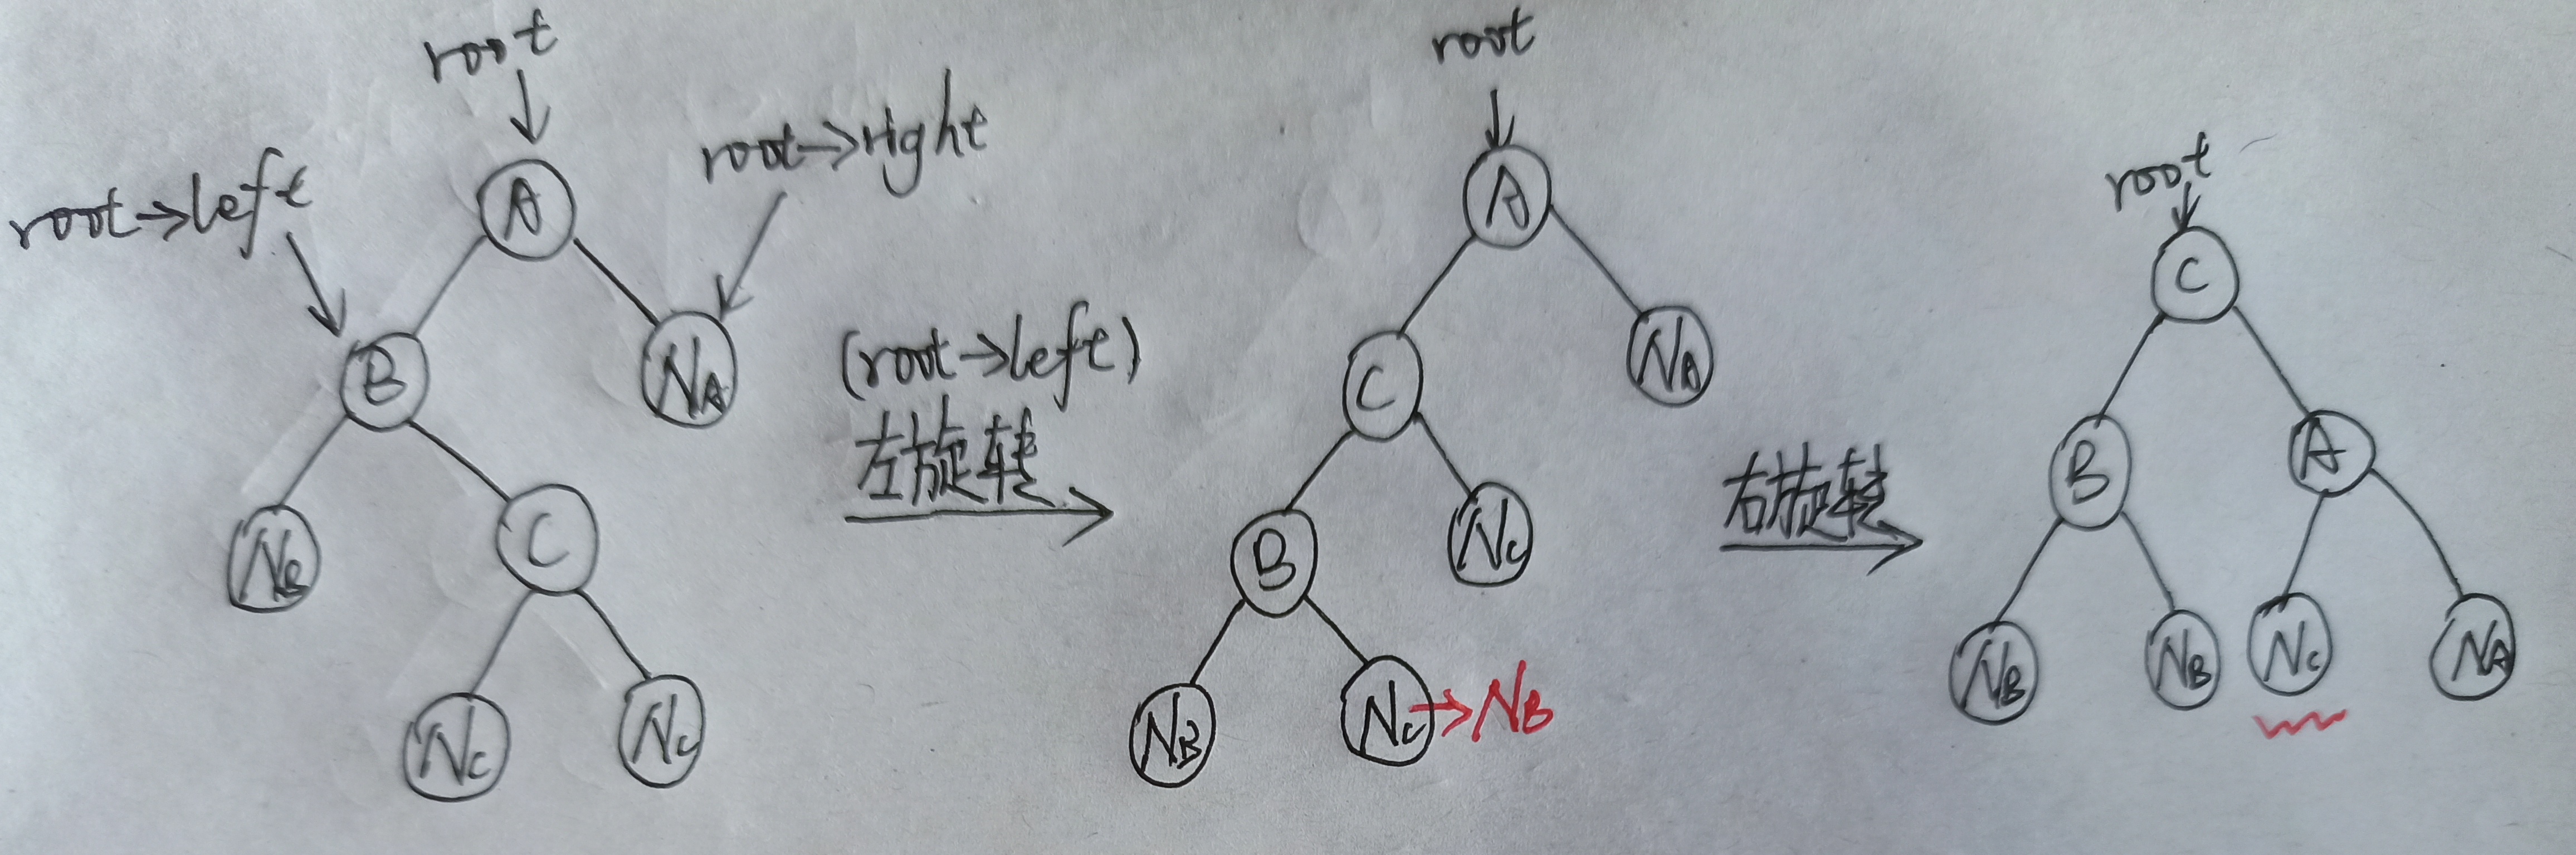 root
root→left
root→right
A
B
NA
NB
C
NC
NC
(root→left)
左旋转
root
A
C
NA
B
NC
NB
NC→NB
右旋转
root
C
B
A
NB
NB
NC
NA